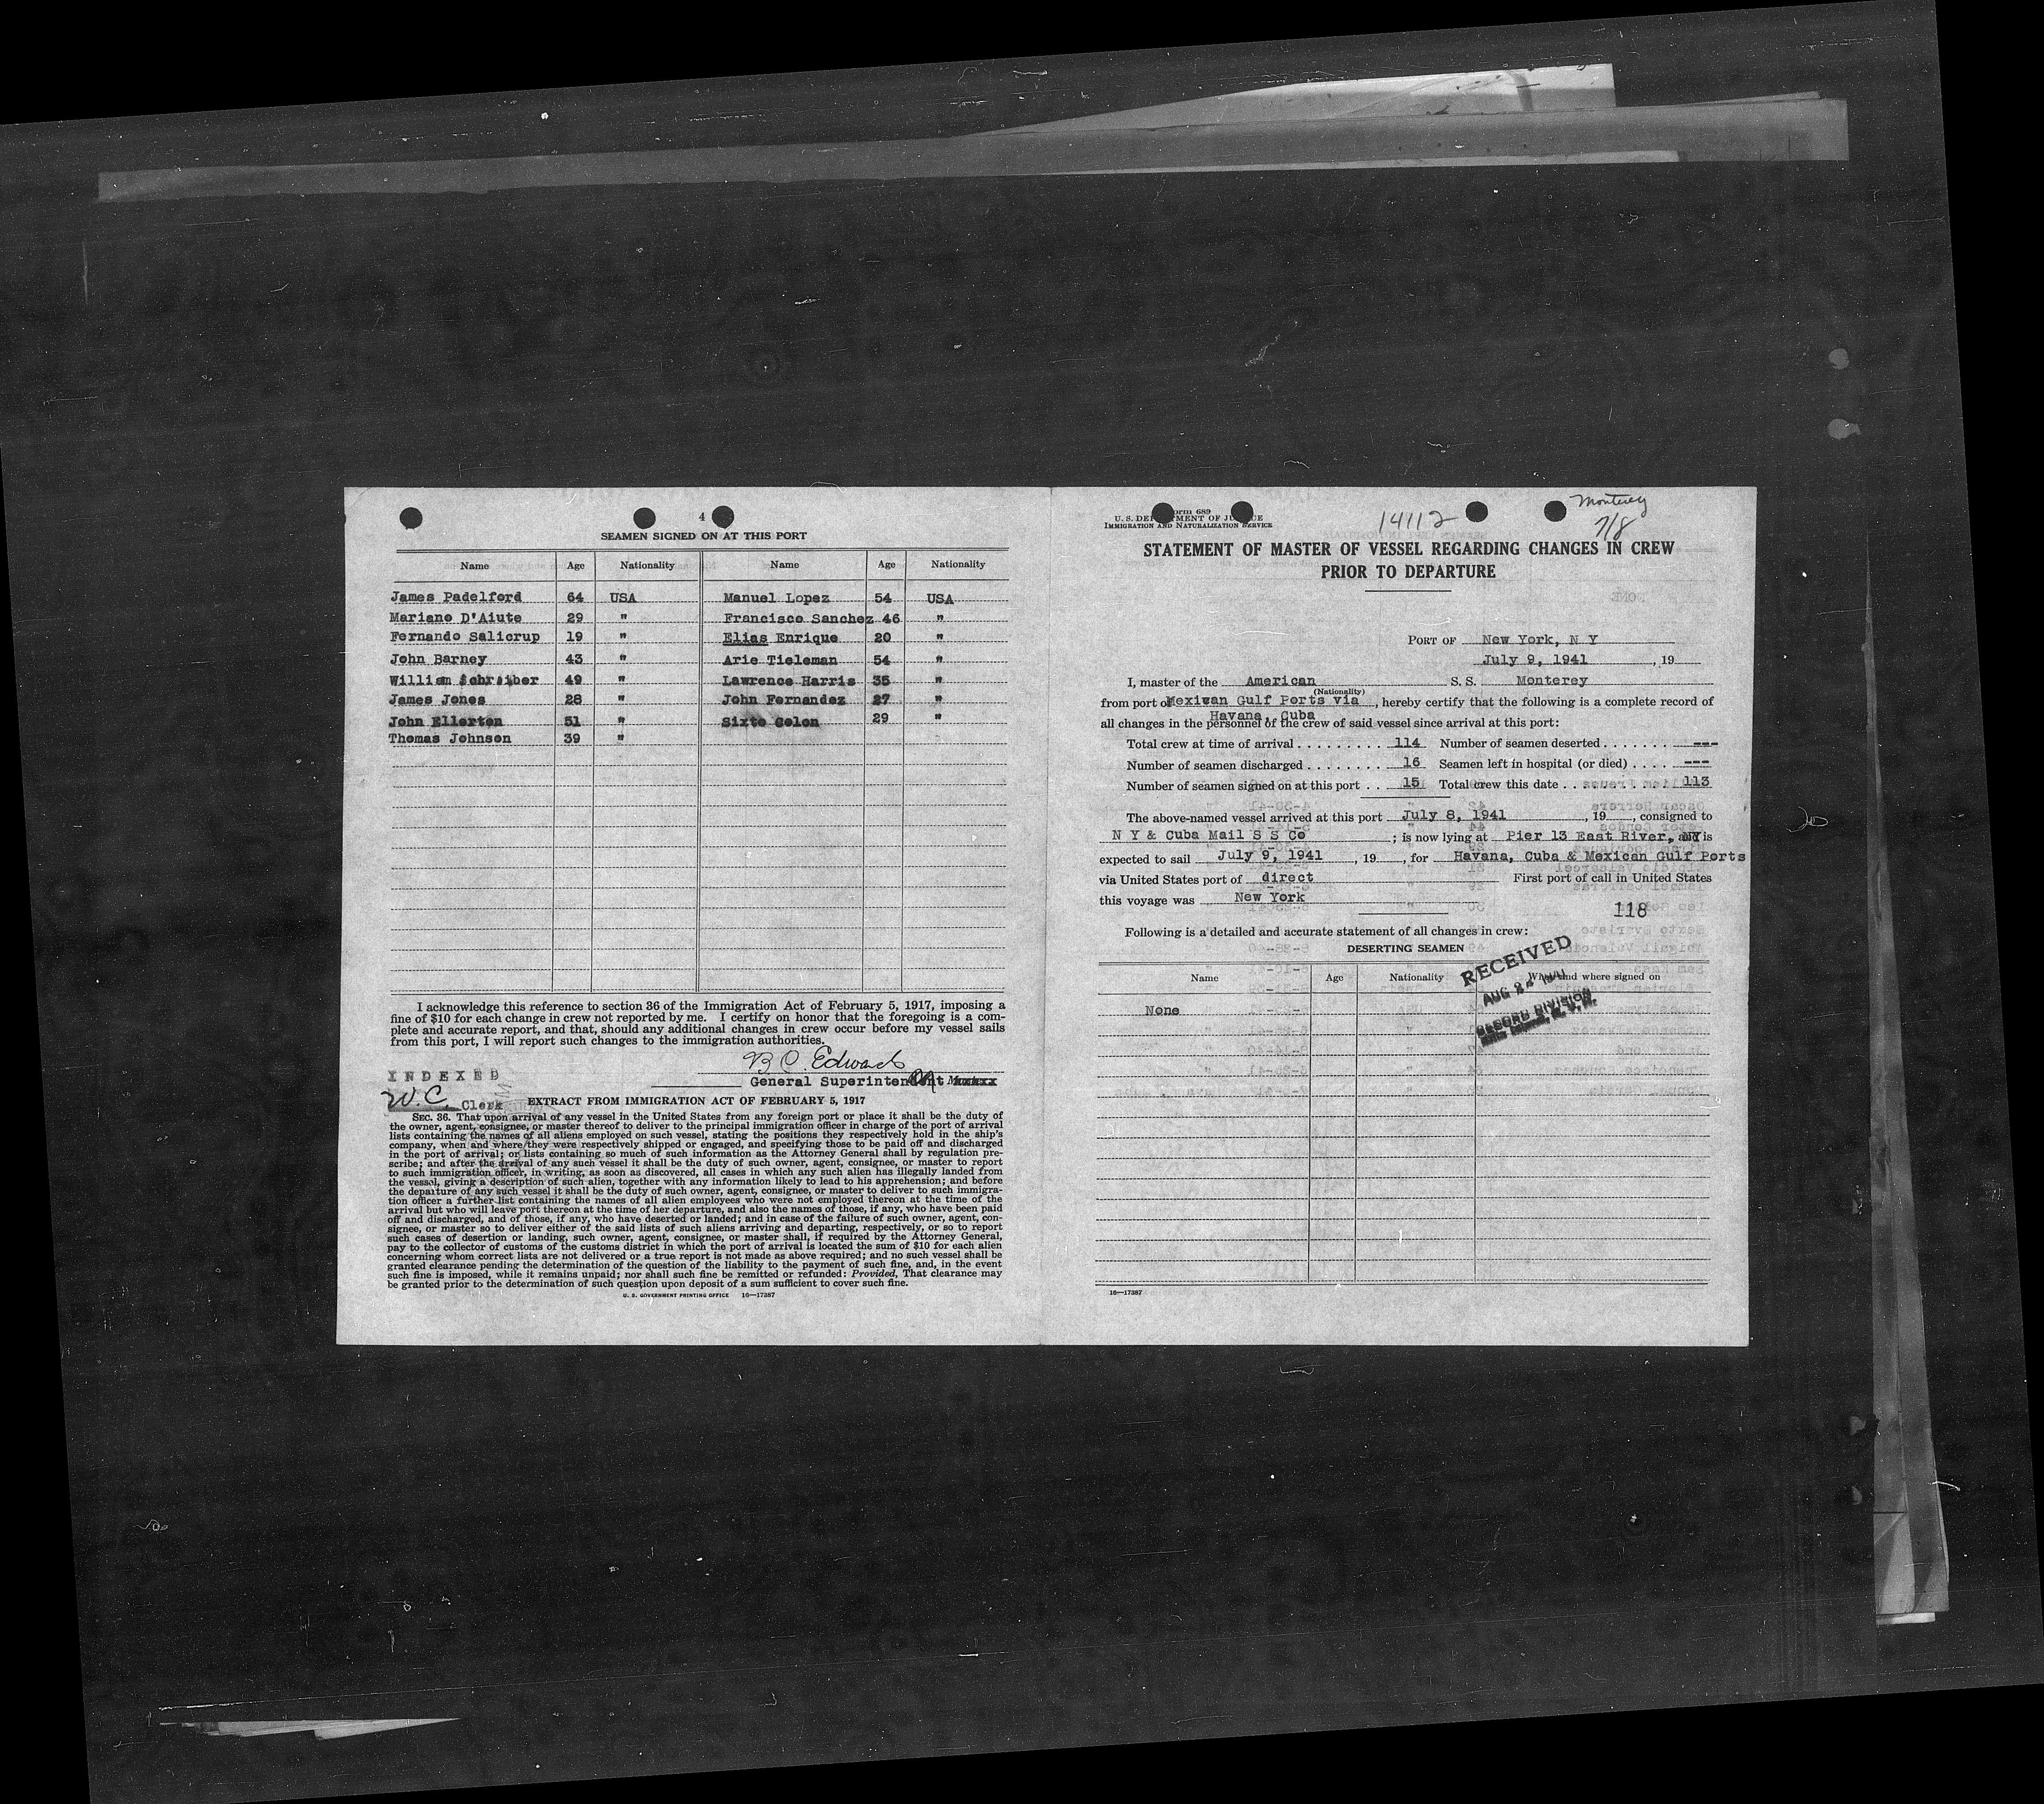 4
SEAMEN SIGNED ON AT THIS PORT
Name Age Nationality Name Age Nationality
James Padelford 64 USA Manuel Lopez 54 USA
Mariano D'Aiute 29 " Francisco Sanchez 46 "
Fernando Salicrup 19 " Elias Enrique 20 "
John Barney 43 " Arie Tieleman 54 "
William Schreiber 49 " Lawrence Harris 35 "
James Jones 28 " John Fernandez 27 "
John Ellerton 51 " Sixto Colon 29 "
Thomas Johnson 39 "
I acknowledge this reference to section 36 of the Immigration Act of February 5, 1917, imposing a
fine of $10 for each change in crew not reported by me. I certify on honor that the foregoing is a com-
plete and accurate report, and that, should any additional changes in crew occur before my vessel sails
from this port, I will report such changes to the immigration authorities.
B C. Edwards
General Superintendent
INDEXED
W.C. Clerk
EXTRACT FROM IMMIGRATION ACT OF FEBRUARY 5, 1917
SEC. 36. That upon arrival of any vessel in the United States from any foreign port or place it shall be the duty of
the owner, agent, consignee, or master thereof to deliver to the principal immigration officer in charge of the port of arrival
lists containing the names of all aliens employed on such vessel, stating the positions they respectively hold in the ship's
company, when and where they were respectively shipped or engaged, and specifying those to be paid off and discharged
in the port of arrival; or lists containing so much of such information as the Attorney General shall by regulation pre-
scribe; and after the arrival of any such vessel it shall be the duty of such owner, agent, consignee, or master to report
to such immigration officer, in writing, as soon as discovered, all cases in which any such alien has illegally landed from
the vessel, giving a description of such alien, together with any information likely to lead to his apprehension; and before
the departure of any such vessel it shall be the duty of such owner, agent, consignee, or master to deliver to such immigra-
tion officer a further list containing the names of all alien employees who were not employed thereon at the time of the
arrival but who will leave port thereon at the time of her departure, and also the names of those, if any, who have been paid
off and discharged, and of those, if any, who have deserted or landed; and in case of the failure of such owner, agent, con-
signee, or master so to deliver either of the said lists of such aliens arriving and departing, respectively, or so to report
such cases of desertion or landing, such owner, agent, consignee, or master shall, if required by the Attorney General,
pay to the collector of customs of the customs district in which the port of arrival is located the sum of $10 for each alien
concerning whom correct lists are not delivered or a true report is not made as above required; and no such vessel shall be
granted clearance pending the determination of the question of the liability to the payment of such fine, and, in the event
such fine is imposed, while it remains unpaid; nor shall such fine be remitted or refunded: Provided, That clearance may
be granted prior to the determination of such question upon deposit of a sum sufficient to cover such fine.
U. S. GOVERNMENT PRINTING OFFICE 16—17387
Form 689
U. S. DEPARTMENT OF JUSTICE
IMMIGRATION AND NATURALIZATION SERVICE
14112
Monterey
7/8
STATEMENT OF MASTER OF VESSEL REGARDING CHANGES IN CREW
PRIOR TO DEPARTURE
PORT OF New York, N Y
July 9, 1941, 19
I, master of the American S. S. Monterey
(Nationality)
from port of Mexican Gulf Ports via, hereby certify that the following is a complete record of
Havana, Cuba
all changes in the personnel of the crew of said vessel since arrival at this port:
Total crew at time of arrival 114 Number of seamen deserted ---
Number of seamen discharged 16 Seamen left in hospital (or died) ---
Number of seamen signed on at this port 15 Total crew this date 113
The above-named vessel arrived at this port July 8, 1941, 19, consigned to
N Y & Cuba Mail S S Co; is now lying at Pier 13 East River, NY and is
expected to sail July 9, 1941, 19, for Havana, Cuba & Mexican Gulf Ports
via United States port of direct First port of call in United States
this voyage was New York
118
Following is a detailed and accurate statement of all changes in crew:
DESERTING SEAMEN
Name Age Nationality When and where signed on
None
RECEIVED
AUG
RECORD DIVISION
16—17387